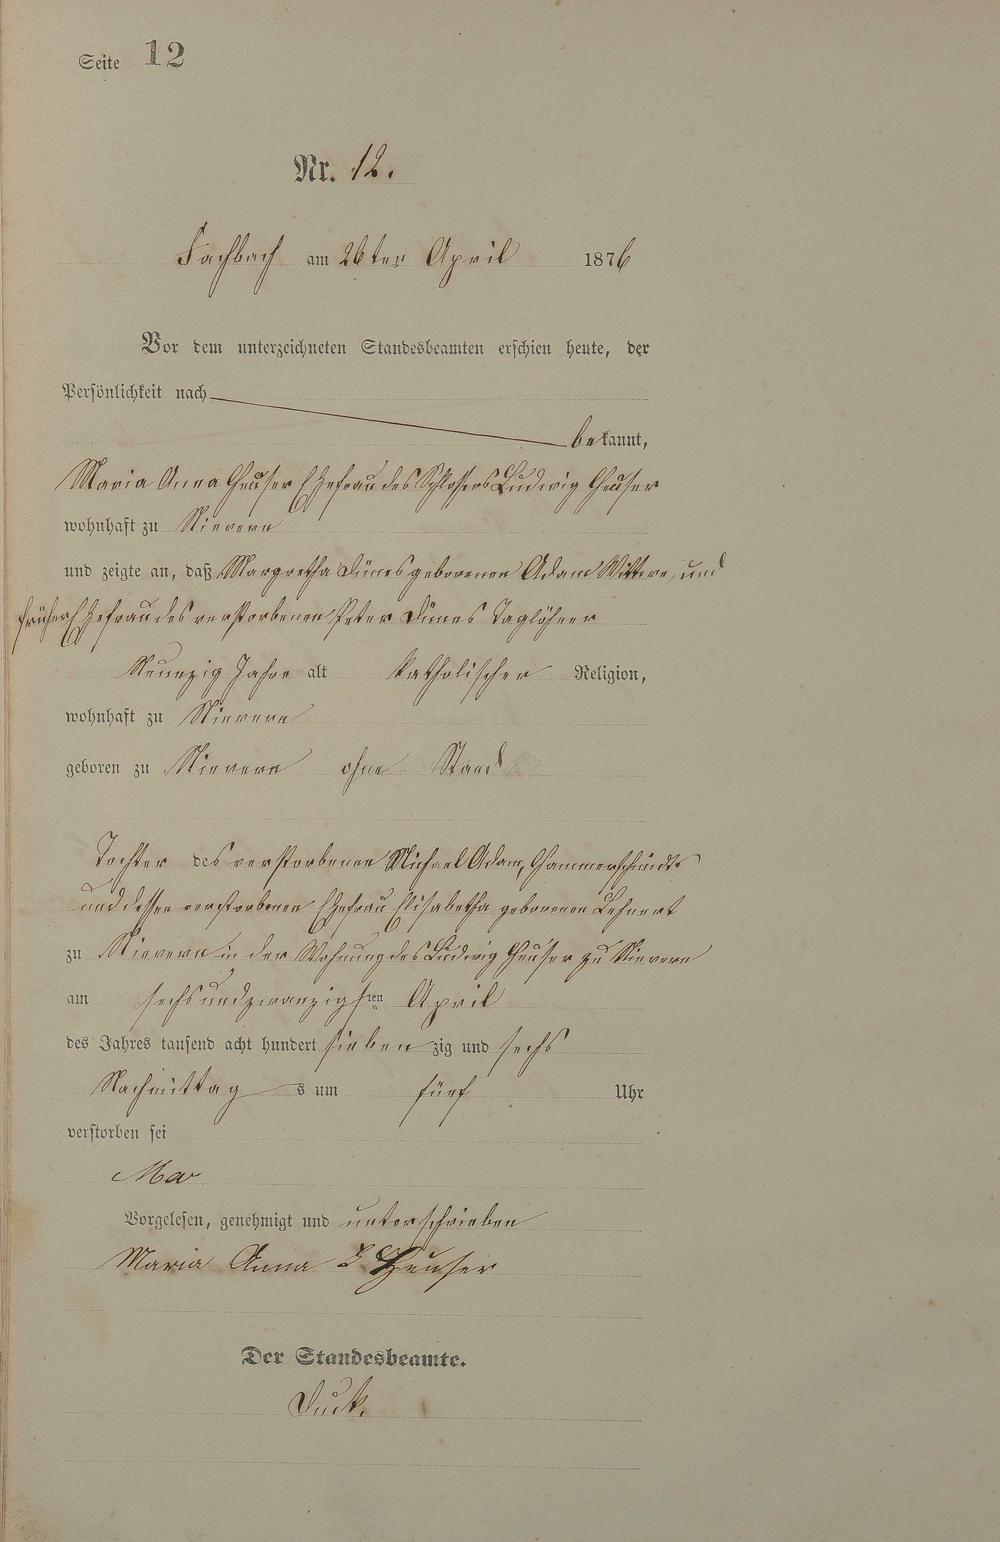 Seite 12
Nr. 12.
Fachbach am 26ten April 1876
Vor dem unterzeichneten Standesbeamten erschien heute, der
Persönlichkeit nach
bekannt,
Maria Anna Heuser Ehefrau des Schlossers Ludwig Heuser
wohnhaft zu Nievern
und zeigte an, daß Margretha Dünes geborenen Adam Wittwe, und
früher Ehefrau des verstorbenen Peter Dünes Taglöhner
Neunzig Jahre alt katholischer Religion,
wohnhaft zu Nievern
geboren zu Nievern ohne Stand
Tochter des verstorbenen Michael Adam, Hammerschmidt
und dessen verstorbenen Ehefrau Elisabetha geborenen Lehnert
zu Nievern in der Wohnung des Ludwig Heuser zu Nievern
am sechsundzwanzigsten April
des Jahres tausend acht hundert siebenzig und sechs
Nachmittags um fünf Uhr
verstorben sei
Mar
Vorgelesen, genehmigt und unterschrieben
Maria Anna Heuser
Der Standesbeamte.